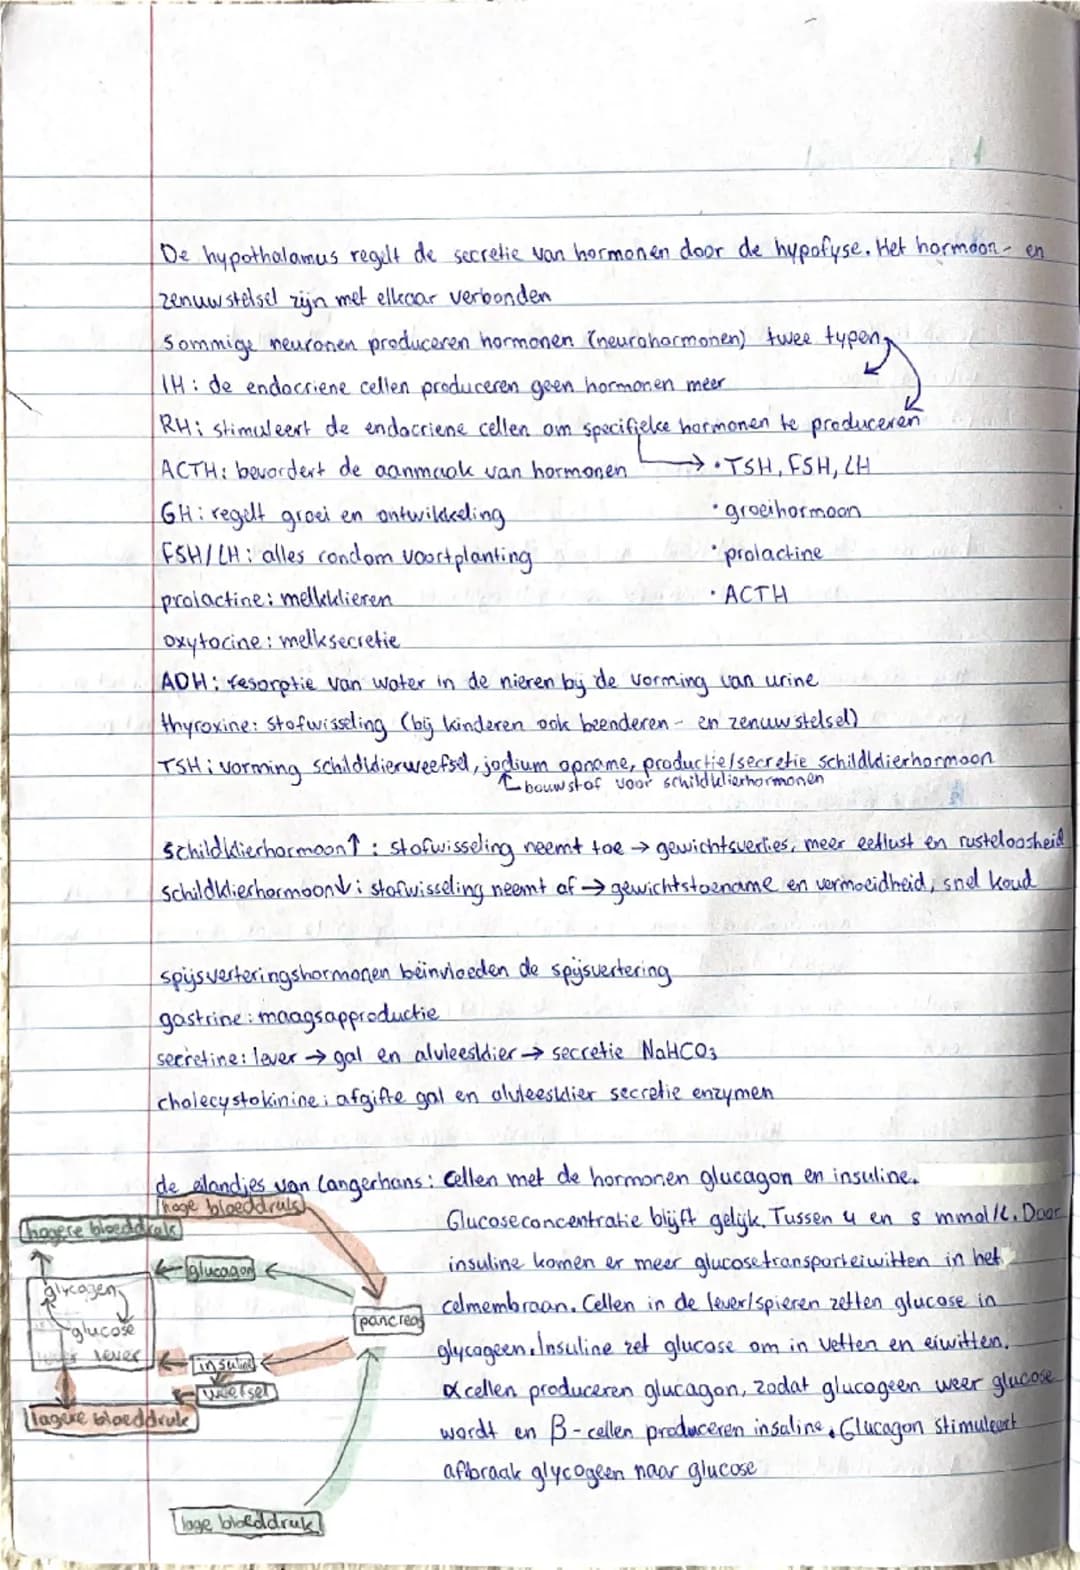 De hypothalamus regelt de secretie van hormonen door de hypofyse. Het hormoon- en
zenuwstelsel zijn met elkaar verbonden
Sommige neuronen produceren hormonen (neurohormonen) twee typen
IH: de endocriene cellen produceren geen hormonen meer
RH: stimuleert de endocriene cellen om specifieke hormonen te produceren
ACTH: bevordert de aanmaak van hormonen → • TSH, FSH, LH
GH: regelt groei en ontwikkeling • groeihormoon
FSH/LH: alles rondom voortplanting • prolactine
prolactine: melkklieren • ACTH
oxytocine: melksecretie
ADH: resorptie van water in de nieren bij de vorming van urine
thyroxine: stofwisseling (bij kinderen ook beenderen- en zenuwstelsel)
TSH: vorming schildklierweefsel, jodium opname, productie/secretie schildklierhormoon
bouwstof voor schildklierhormonen
schildklierhormoon↑: stofwisseling neemt toe → gewichtsverlies, meer eetlust en rusteloosheid
schildklierhormoon↓: stofwisseling neemt af → gewichtstoename en vermoeidheid, snel koud
spijsverteringshormonen beïnvloeden de spijsvertering
gastrine: maagsapproductie
secretine: lever → gal en alvleesklier → secretie NaHCO3
cholecystokinine: afgifte gal en alvleesklier secretie enzymen
de eilandjes van Langerhans: cellen met de hormonen glucagon en insuline.
hoge bloeddruk
hogere bloeddruk
glucagon
glycogeen
glucose
lever
pancreas
insuline
weefsel
lagere bloeddruk
lage bloeddruk
Glucoseconcentratie blijft gelijk. Tussen 4 en 8 mmol/L. Door
insuline komen er meer glucosetransporteiwitten in het
celmembraan. Cellen in de lever/spieren zetten glucose in
glycogeen. Insuline zet glucose om in vetten en eiwitten.
α cellen produceren glucagon, zodat glucogeen weer glucose
wordt en β-cellen produceren insuline. Glucagon stimuleert
afbraak glycogeen naar glucose